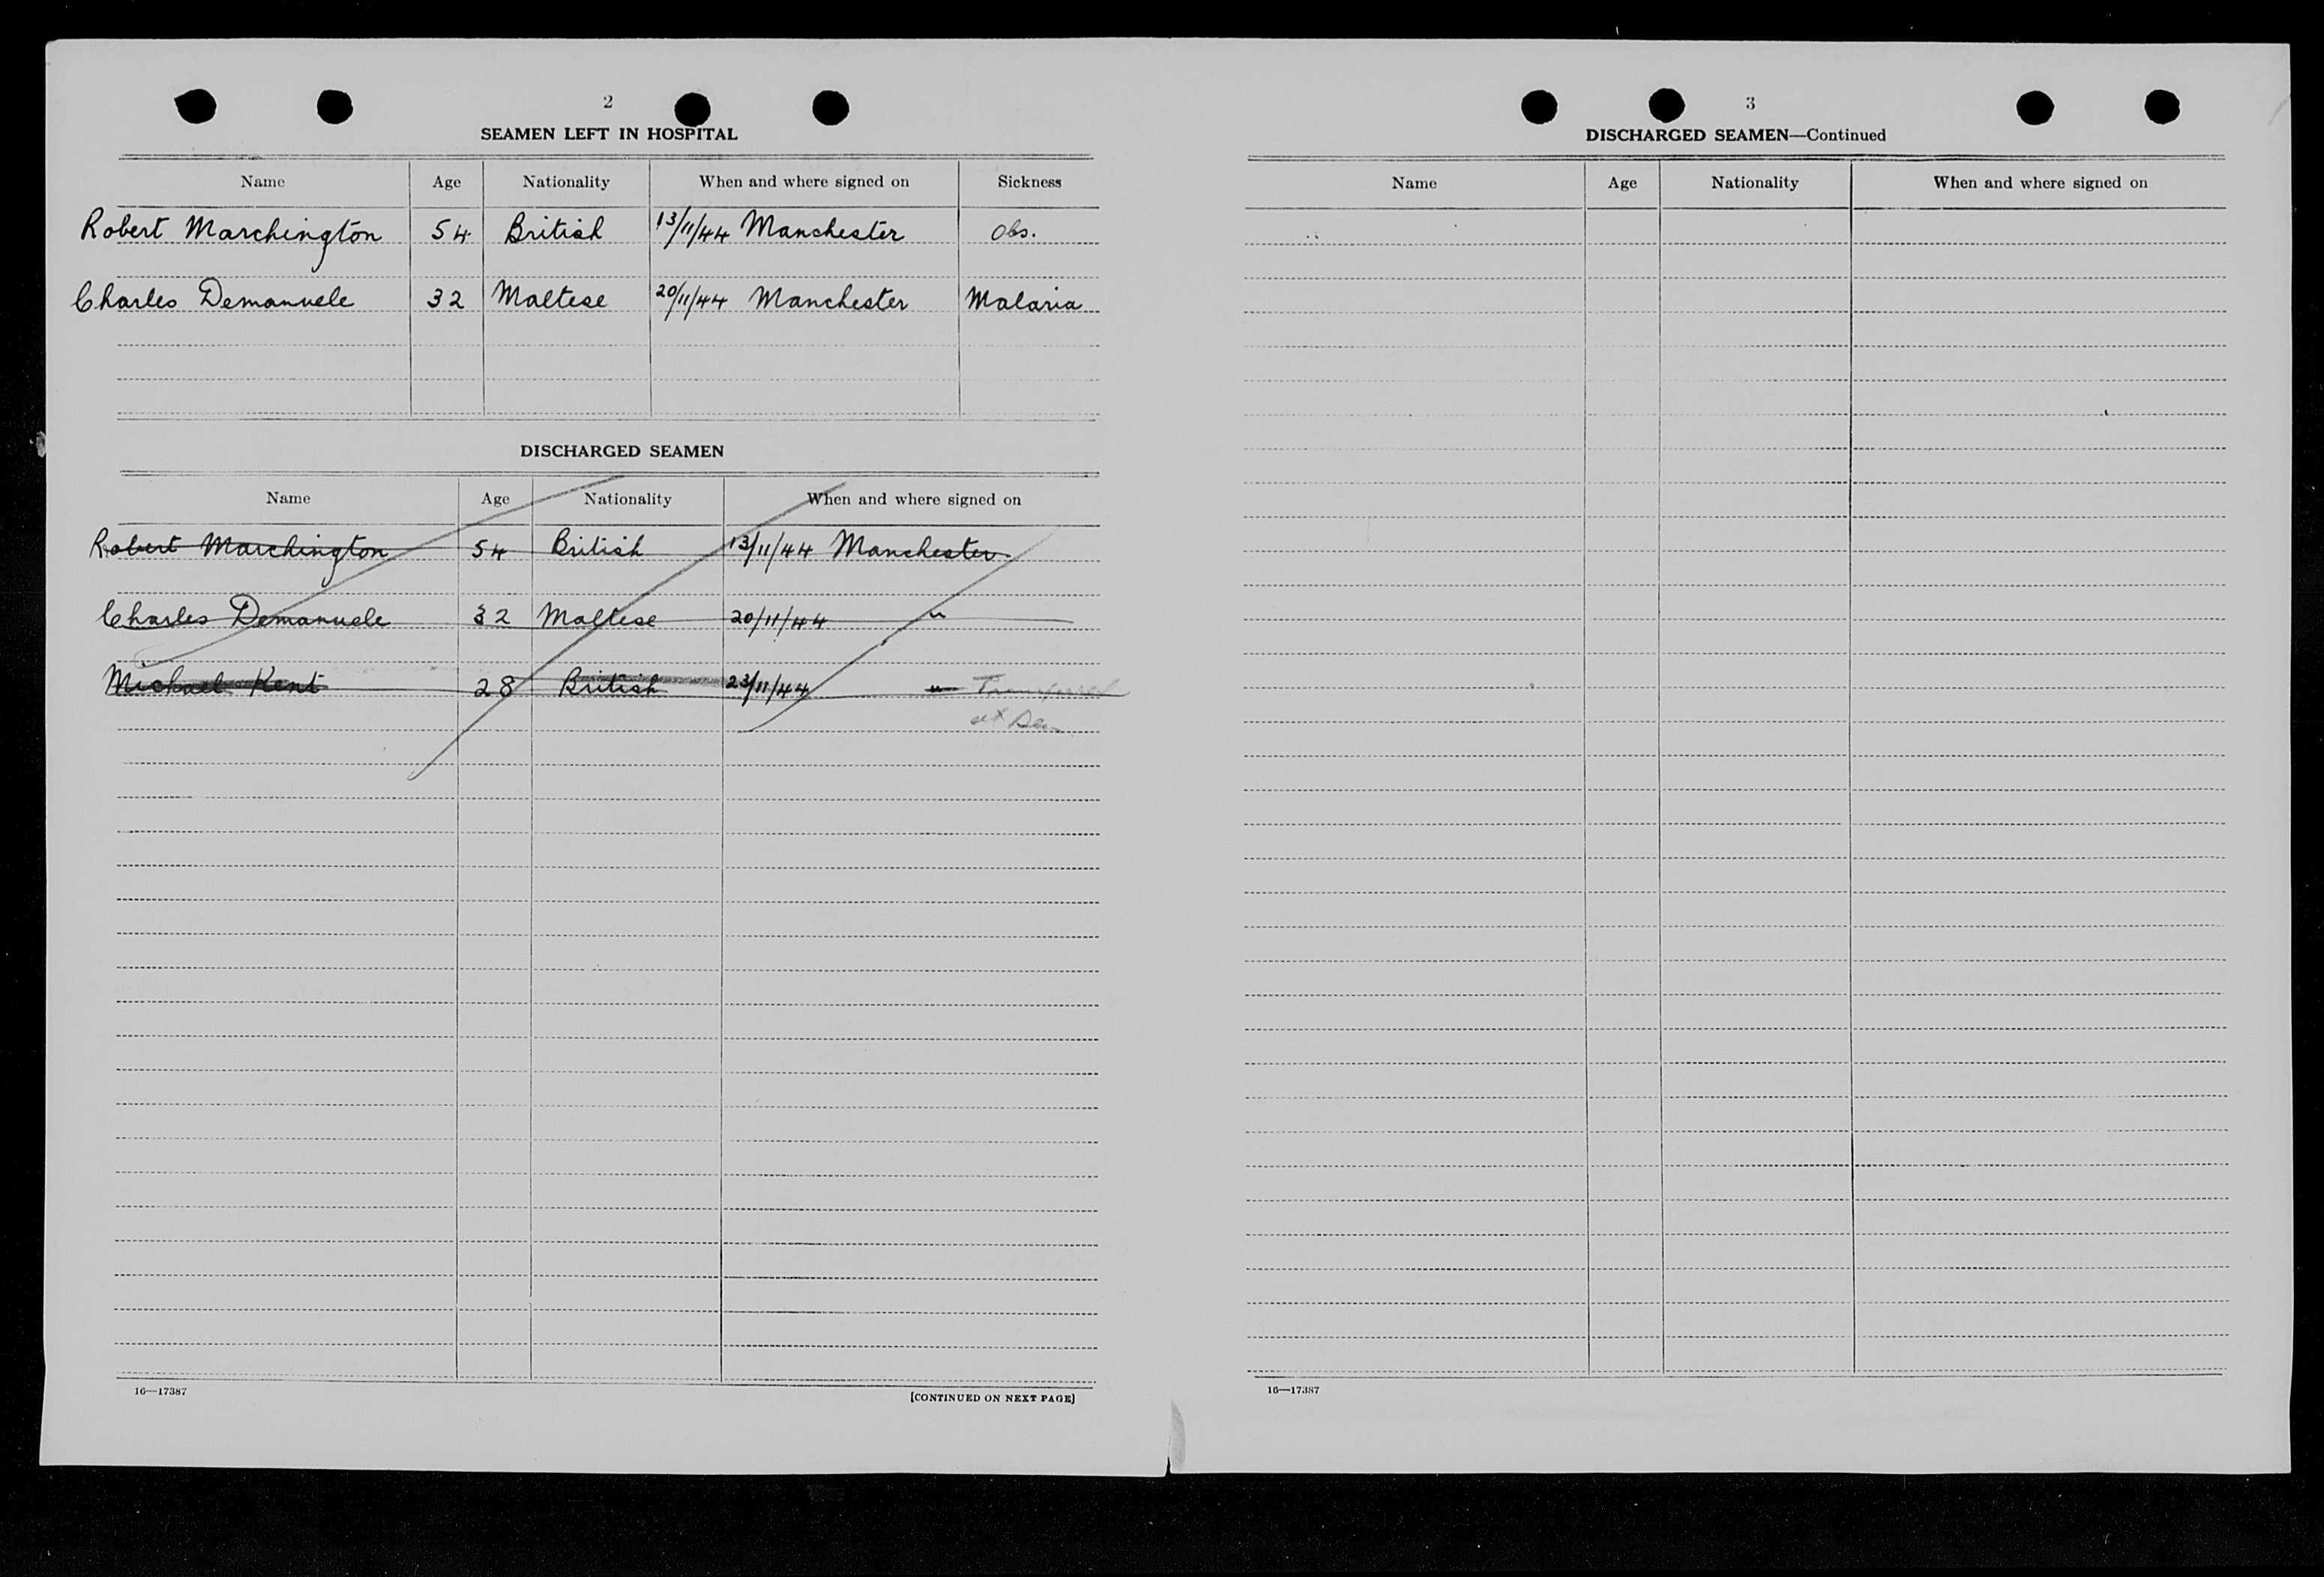 2
SEAMEN LEFT IN HOSPITAL
Name Age Nationality When and where signed on Sickness
Robert Marchington 54 British 13/11/44 Manchester Obs.
Charles Demanuele 32 Maltese 20/11/44 Manchester Malaria
DISCHARGED SEAMEN
Name Age Nationality When and where signed on
Robert Marchington 54 British 13/11/44 Manchester
Charles Demanuele 32 Maltese 20/11/44 "
Michael Kent 28 British 23/11/44 "
at Sea
16—17387 [CONTINUED ON NEXT PAGE]
3
DISCHARGED SEAMEN—Continued
Name Age Nationality When and where signed on
16—17387